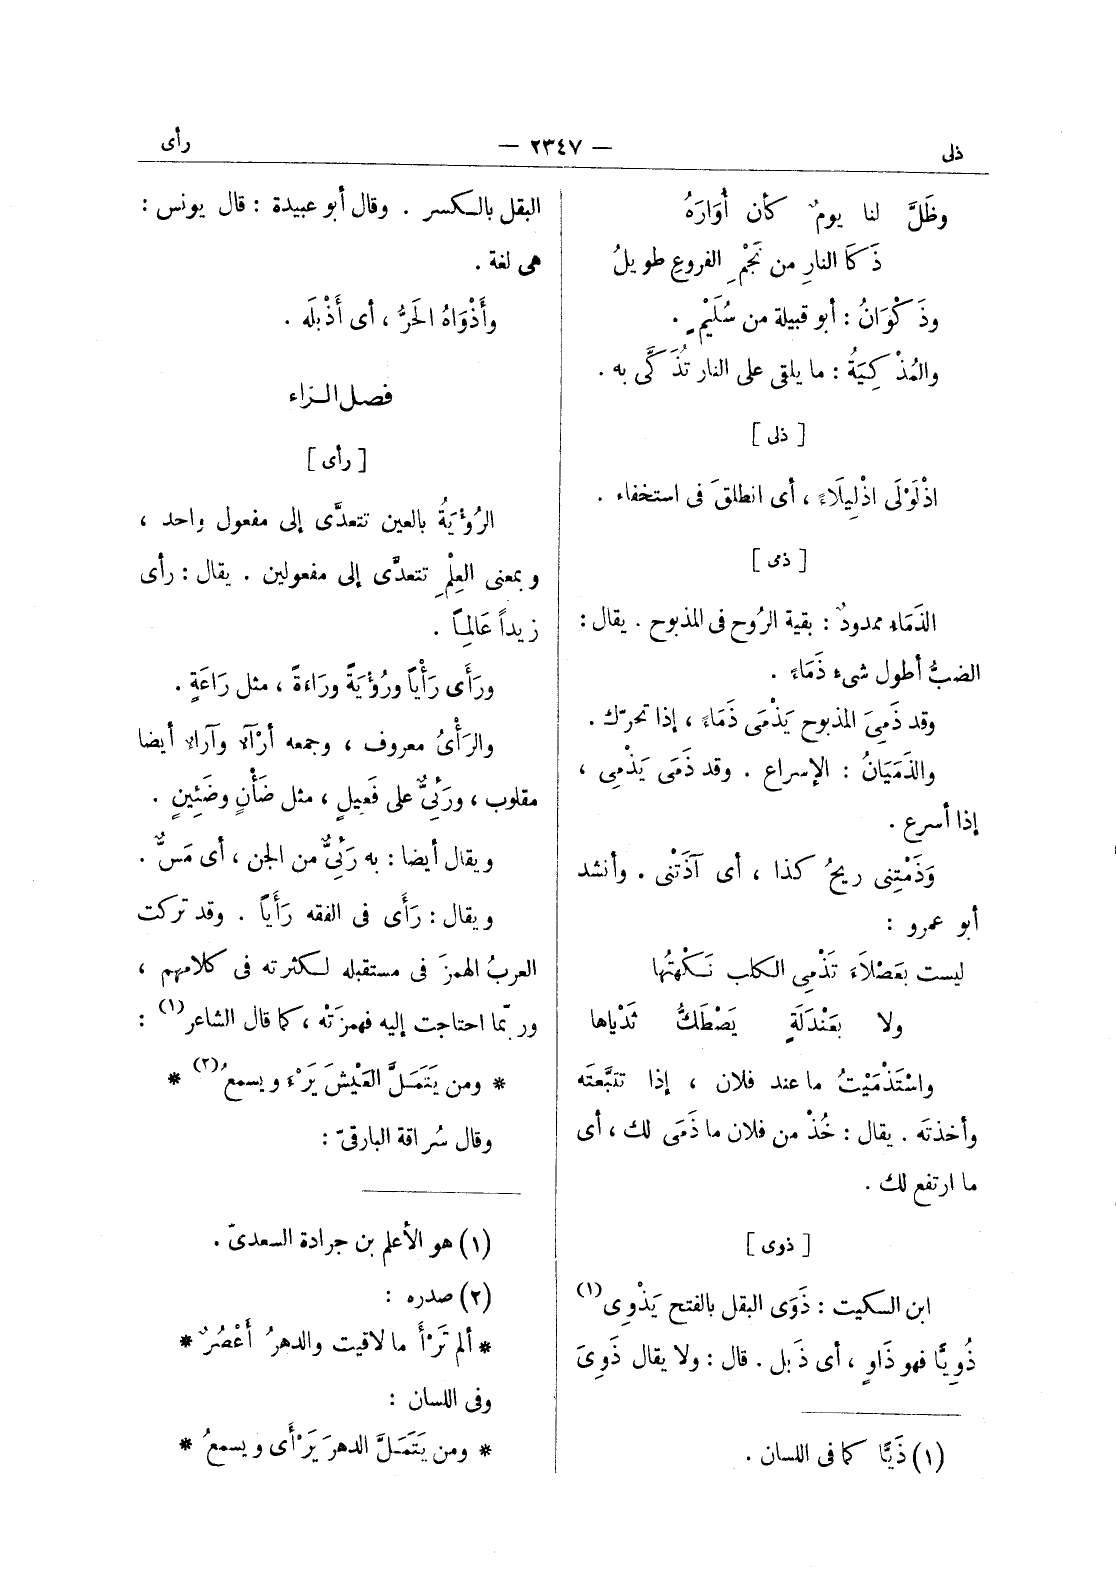 ذلى — ٢٣٤٧ — رأى
وظَلَّ لنا يومٌ كأن أُوَارَهُ
ذَكَا النارِ من نَجْمِ الفروعِ طويلُ
وذَكْوَانُ : أبو قبيلة من سُلَيْمٍ .
والمُذْكِيَةُ : ما يلقى على النار تُذَكَّى به .
[ ذلى ]
اذْلَوْلَى اذْلِيلَاءً ، أى انطلقَ فى استخفاء .
[ ذمى ]
الذَمَاء ممدودٌ : بقية الرُوح فى المذبوح . يقال :
الضبُّ أطول شىء ذَمَاءً .
وقد ذَمِىَ المذبوح يَذْمَى ذَمَاءً ، إذا تحرّك .
والذَمَيَانُ : الإسراع . وقد ذَمَى يَذْمِى ،
إذا أسرع .
وَذَمْتِنى ريحُ كذا ، أى آذَتْنى . وأنشد
أبو عمرو :
ليست بعَصْلَاءَ تَذْمِى الكلب نَكْهتُها
ولا بعَنْدلَةٍ يَصْطَكُّ ثَدْياها
واسْتَذْمَيْتُ ما عند فلان ، إذا تتبَّعتَه
وأخذتَه . يقال : خُذْ من فلان ما ذَمَى لك ، أى
ما ارتفع لك .
[ ذوى ]
ابن السكيت : ذَوَى البقل بالفتح يَذْوِى (١)
ذُوِيًّا فهو ذَاوٍ ، أى ذبل . قال : ولا يقال ذَوِىَ
(١) ذَيًّا كما فى اللسان .
البقل بالكسر . وقال أبو عبيدة : قال يونس :
هى لغة .
وأَذْوَاهُ الحَرُّ ، أى أَذْبلَه .
فصل الراء
[ رأى ]
الرُؤْيَةُ بالعين تتعدَّى إلى مفعول واحد ،
وبمعنى العِلْمِ تتعدَّى إلى مفعولين . يقال : رأى
زيداً عَالِمًا .
ورَأَى رَأْياً ورُؤْيَةً ورَاءَةً ، مثل رَاعَةٍ .
والرَأْىُ معروف ، وجمعه أرْآلا وآرالا أيضا
مقلوب ، ورَئِىٌّ على فَعِيلٍ ، مثل ضَأْنٍ وضَئِينٍ .
ويقال أيضا : به رَئِىٌّ من الجن ، أى مَسٌّ .
ويقال : رَأَى فى الفقه رَأْياً . وقد تركت
العربُ الهمزَ فى مستقبله لكثرته فى كلامهم ،
وربّما احتاجت إليه فهمزَتْه ، كما قال الشاعر (١) :
* ومن يَتَمَلَّ العَيْشَ يَرْءَ ويسمعُ (٢) *
وقال سُراقة البارقىّ :
(١) هو الأعلم بن جرادة السعدىّ .
(٢) صدره :
* ألم تَرْأَ ما لاقيت والدهرُ أَعْصُرٌ *
وفى اللسان :
* ومن يَتَمَلَّ الدهرَ يَرْأَى ويسمعُ *